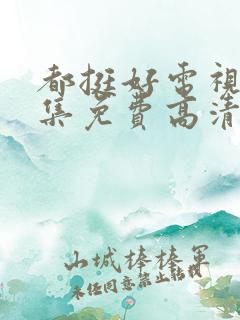 都挺好電視
集免費高清
山城棒棒軍
未经同意禁止転載